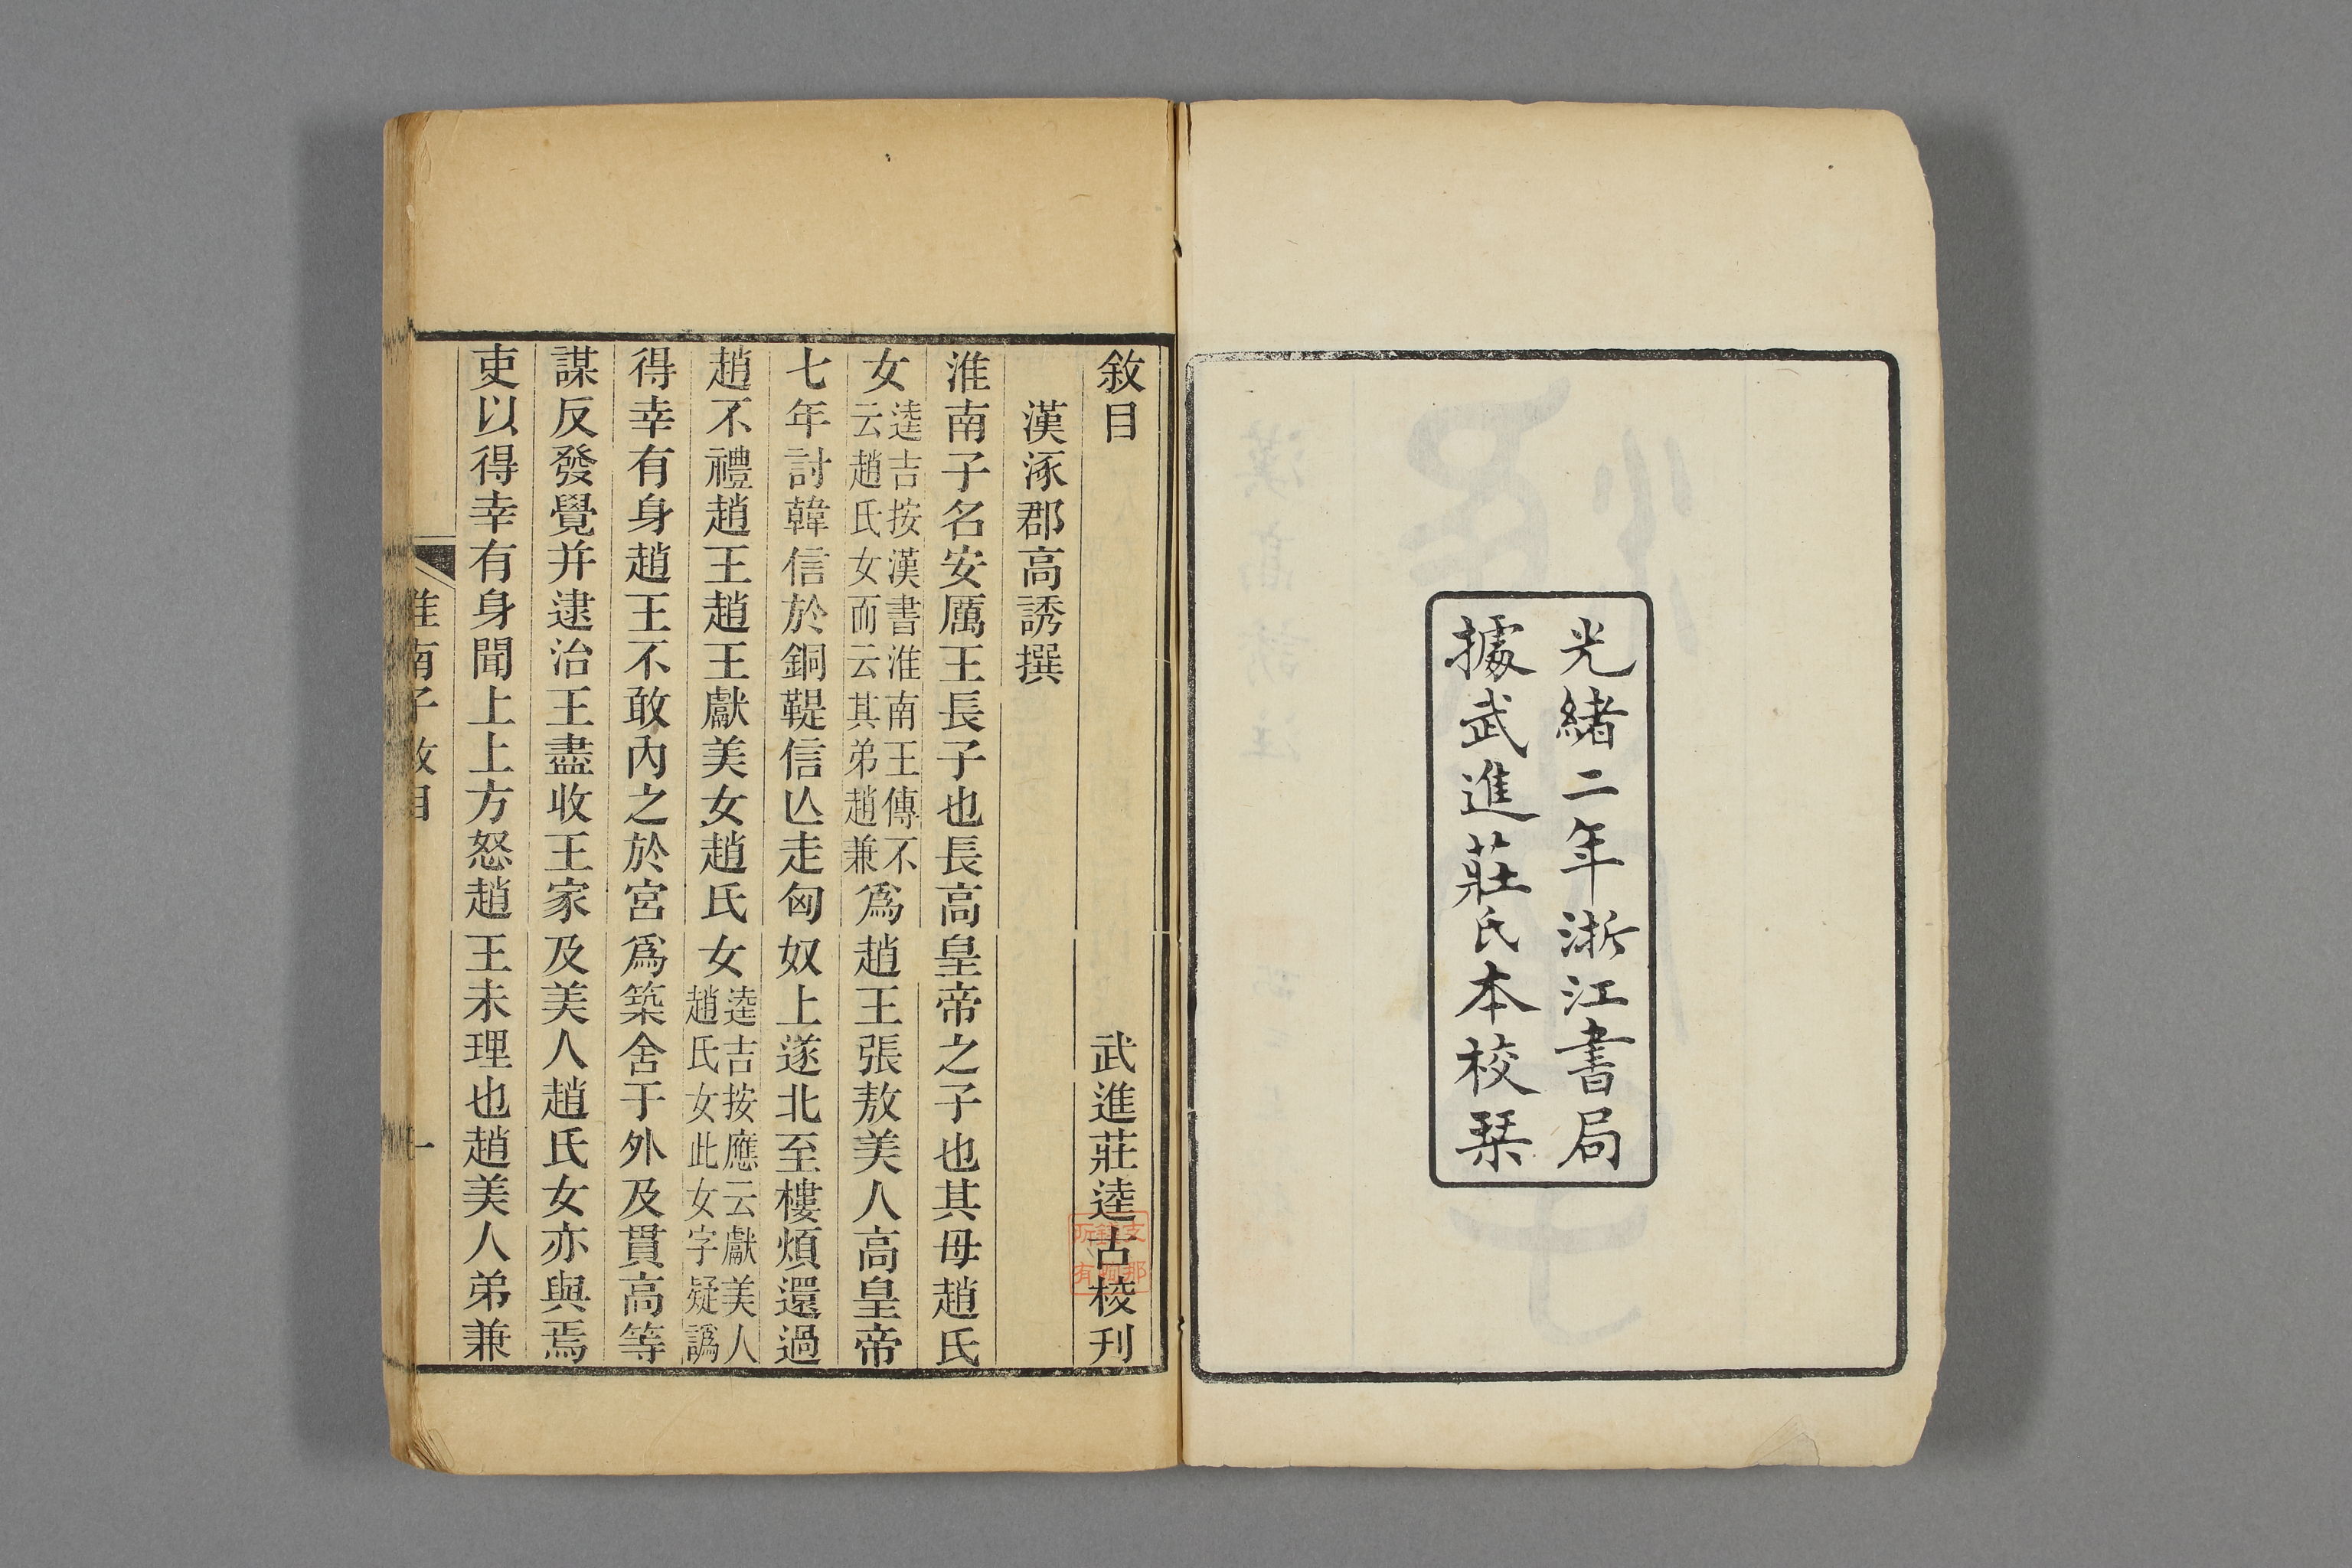 光緒二年浙江書局
據武進莊氏本校栞
敘目　武進莊逵吉校刊
漢涿郡高誘撰
淮南子名安厲王長子也長高皇帝之子也其母趙氏
女逵吉按漢書淮南王傳不云趙氏女而云其弟趙兼爲趙王張敖美人高皇帝
七年討韓信於銅鞮信亾走匈奴上遂北至樓煩還過
趙不禮趙王趙王獻美女趙氏女逵吉按應云獻美人趙氏女此女字疑譌
得幸有身趙王不敢內之於宮爲築舍于外及貫高等
謀反發覺并逮治王盡收王家及美人趙氏女亦與焉
吏以得幸有身聞上上方怒趙王未理也趙美人弟兼
淮南子敘目　一